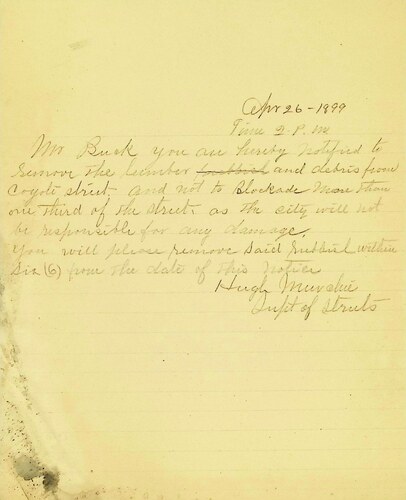 Apr 26-1899
Time 2 P.M.
Mr Buck you are hereby notified to
remove the lumber rubbish and debris from
Coyote street and not to Blockade more than
one third of the street as the city will not
be responsible for any damage.
You will please remove said rubbish within
Six (6) from the date of this notice
Hugh Murchie
Supt of Streets